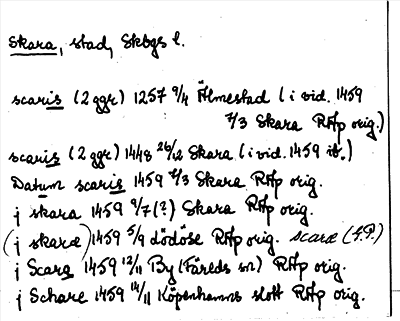 Skara, stad, Skbgs l.
scaris (2 ggr) 1257 9/4 Älmestad (i vid. 1459
7/3 Skara RAp orig.)
scaris (2 ggr) 1448 26/12 Skara (i vid. 1459 ib.)
Datum scaris 1459 7/3 Skara RAp orig.
j skara 1459 9/7 (?) Skara RAp orig.
(j skaræ) 1459 5/9 Lödöse RAp orig. scara (S.P.)
j Scara 1459 12/11 By (Fåreds sn) RAp orig.
j Schare 1459 14/11 Köpenhamns slott RAp orig.